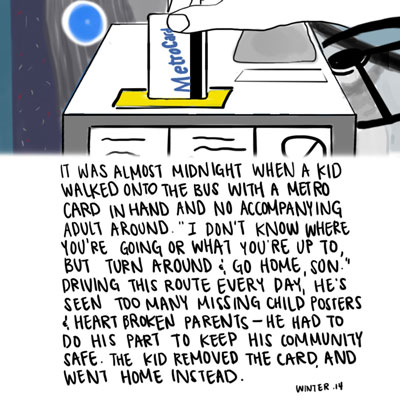 MetroCard
IT WAS ALMOST MIDNIGHT WHEN A KID
WALKED ONTO THE BUS WITH A METRO
CARD IN HAND AND NO ACCOMPANYING
ADULT AROUND. "I DON'T KNOW WHERE
YOU'RE GOING OR WHAT YOU'RE UP TO,
BUT TURN AROUND & GO HOME, SON."
DRIVING THIS ROUTE EVERY DAY, HE'S
SEEN TOO MANY MISSING CHILD POSTERS
& HEART BROKEN PARENTS – HE HAD TO
DO HIS PART TO KEEP HIS COMMUNITY
SAFE. THE KID REMOVED THE CARD, AND
WENT HOME INSTEAD.
WINTER .14